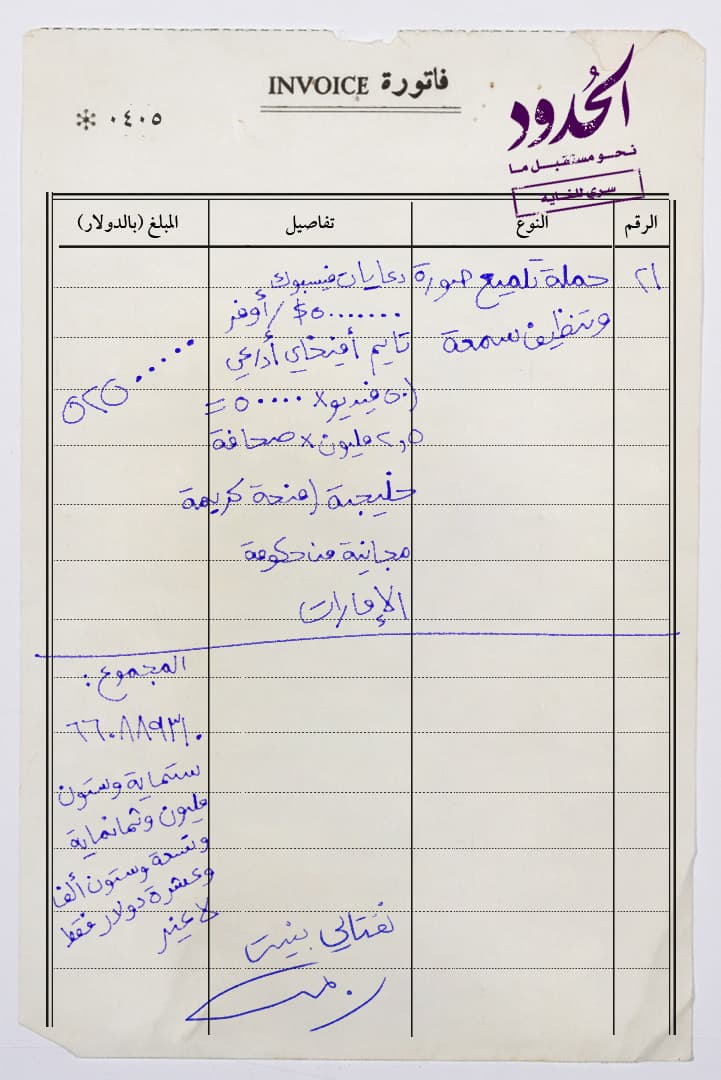 فاتورة INVOICE
٠٤٠٥ *
الحدود
نحو مستقبل ما
سري للغاية
الرقم النوع تفاصيل المبلغ (بالدولار)
٢١
حملة تلميع صورة
وتنظيف سمعة
دعايات فيسبوك
٥٠٠٠٠٠٠٠$ / أوفر
تايم أفيخاي أدرعي
(٥٠ فيديو x ٥٠٠٠٠ =
٢,٥ مليون x صحافة
خليجية (منحة كريمة
مجانية من حكومة
الإمارات
٥٢٥٠٠٠٠٠
المجموع:
٦٦٠٨٨٩٣١٠
ستماية وستون
مليون وثمانماية
وتسعة وستون ألفا
وعشرة دولار فقط
لا غير
نفتالي بينيت